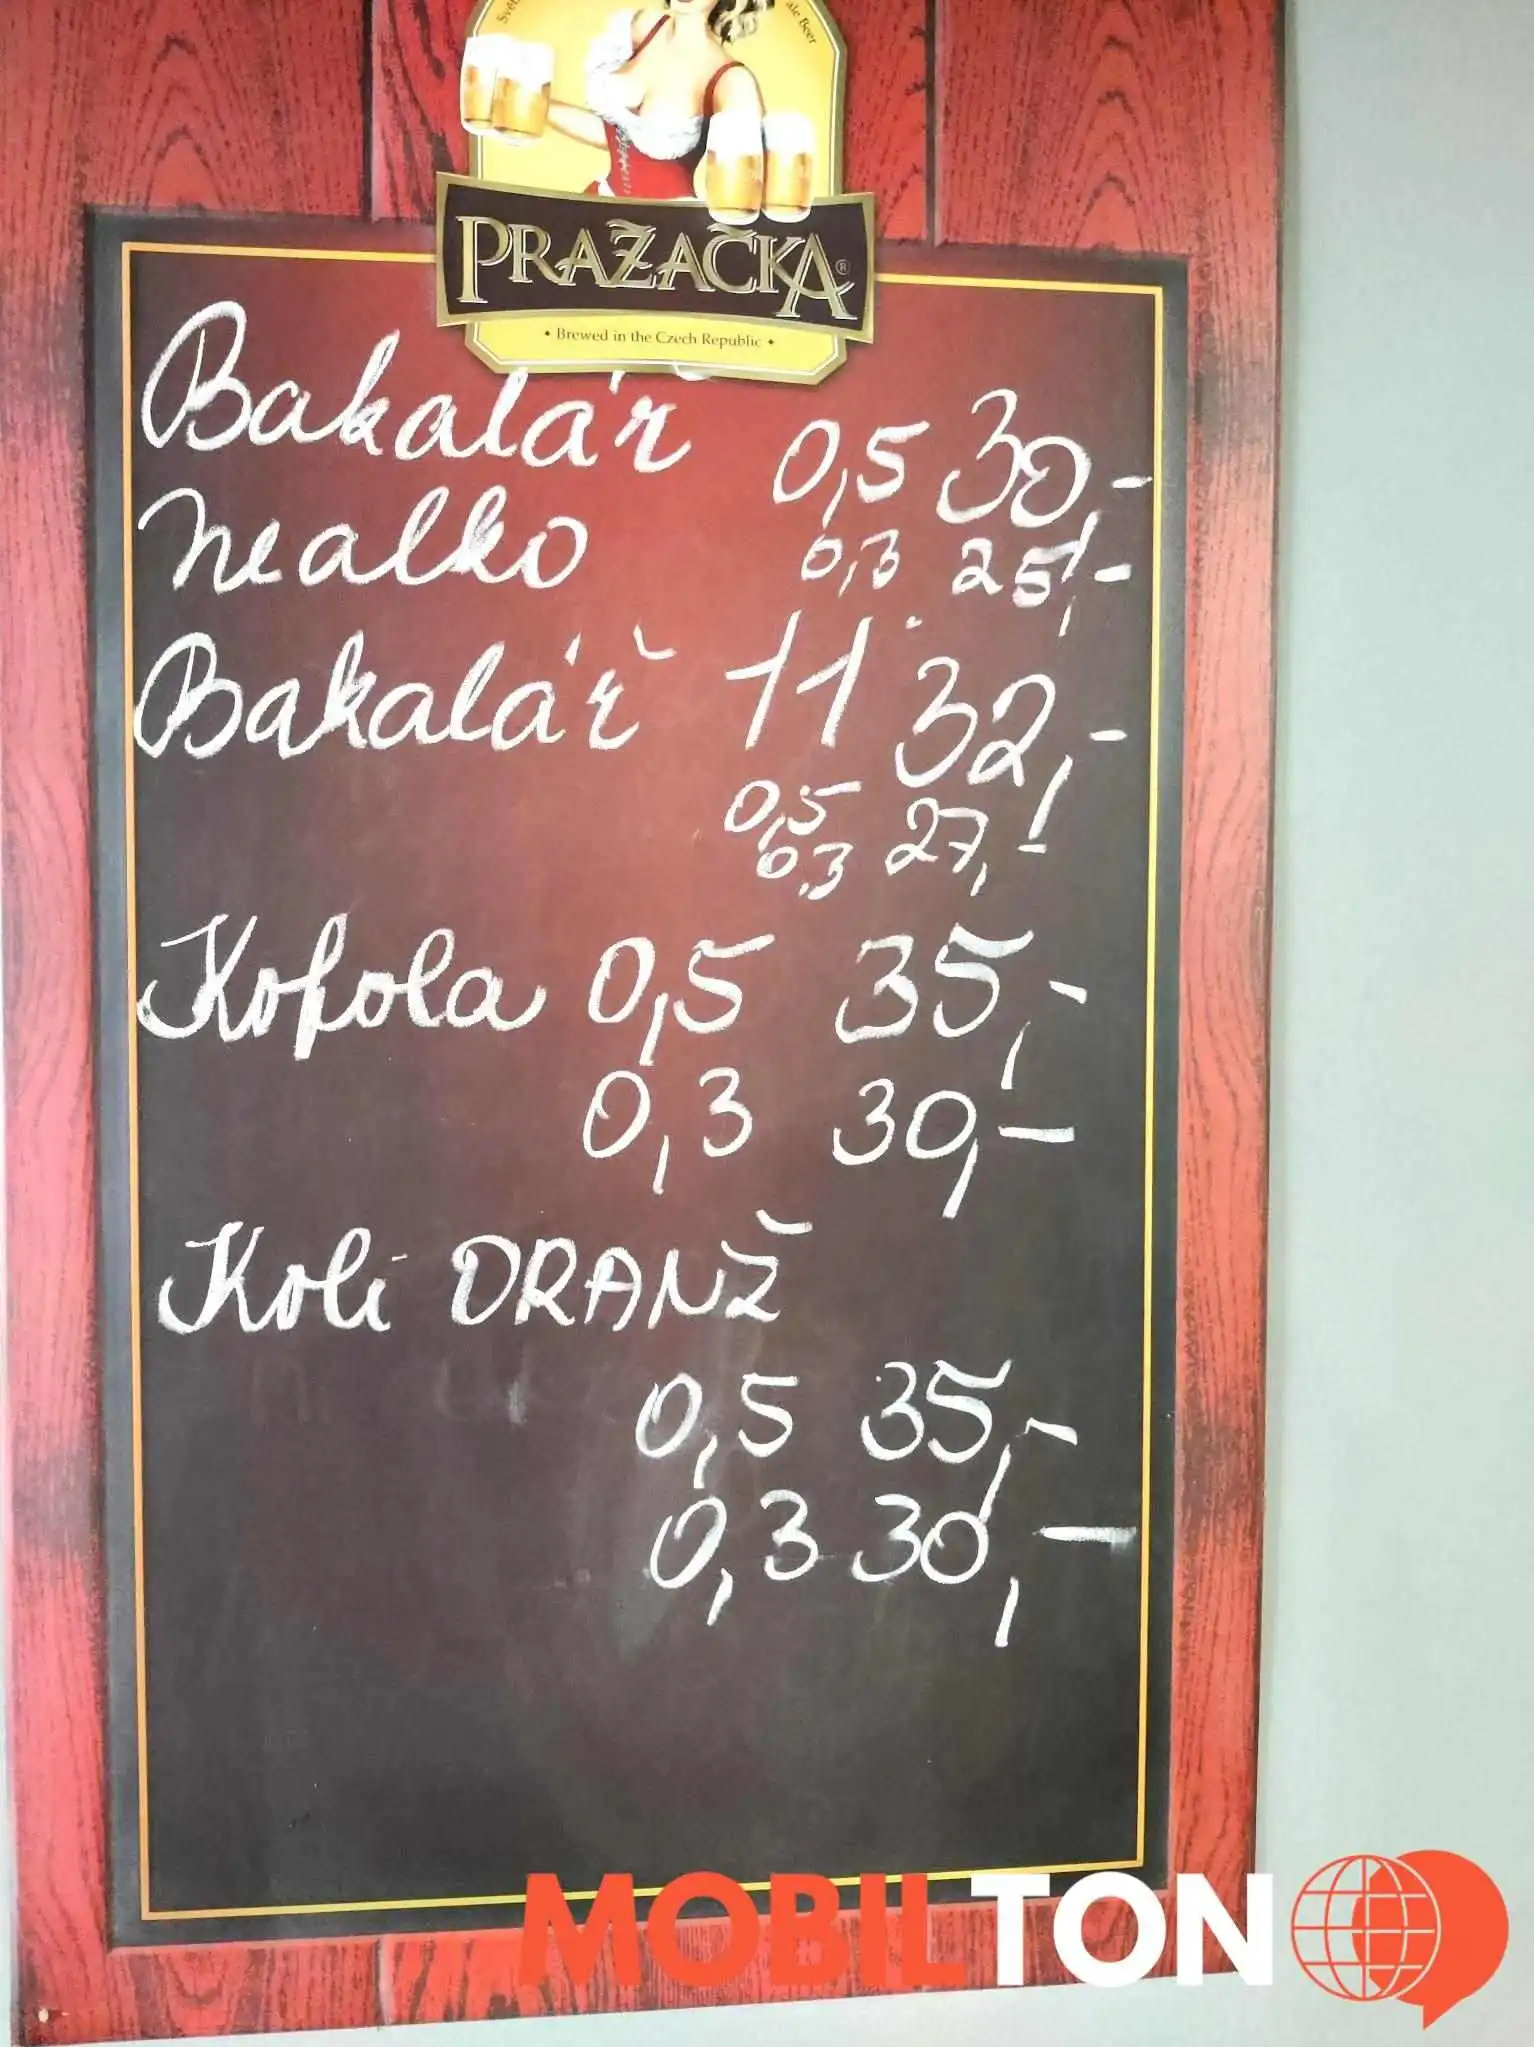 ale Beer
PRAŽAČKA®
• Brewed in the Czech Republic •
Bakalář 0,5 30,-
nealko 0,3 25,-
Bakalář 11 32,-
0,5
0,3 27,-
Kofola 0,5 35,-
0,3 30,-
Koli ORANŽ
0,5 35,-
0,3 30,-
MOBILTON